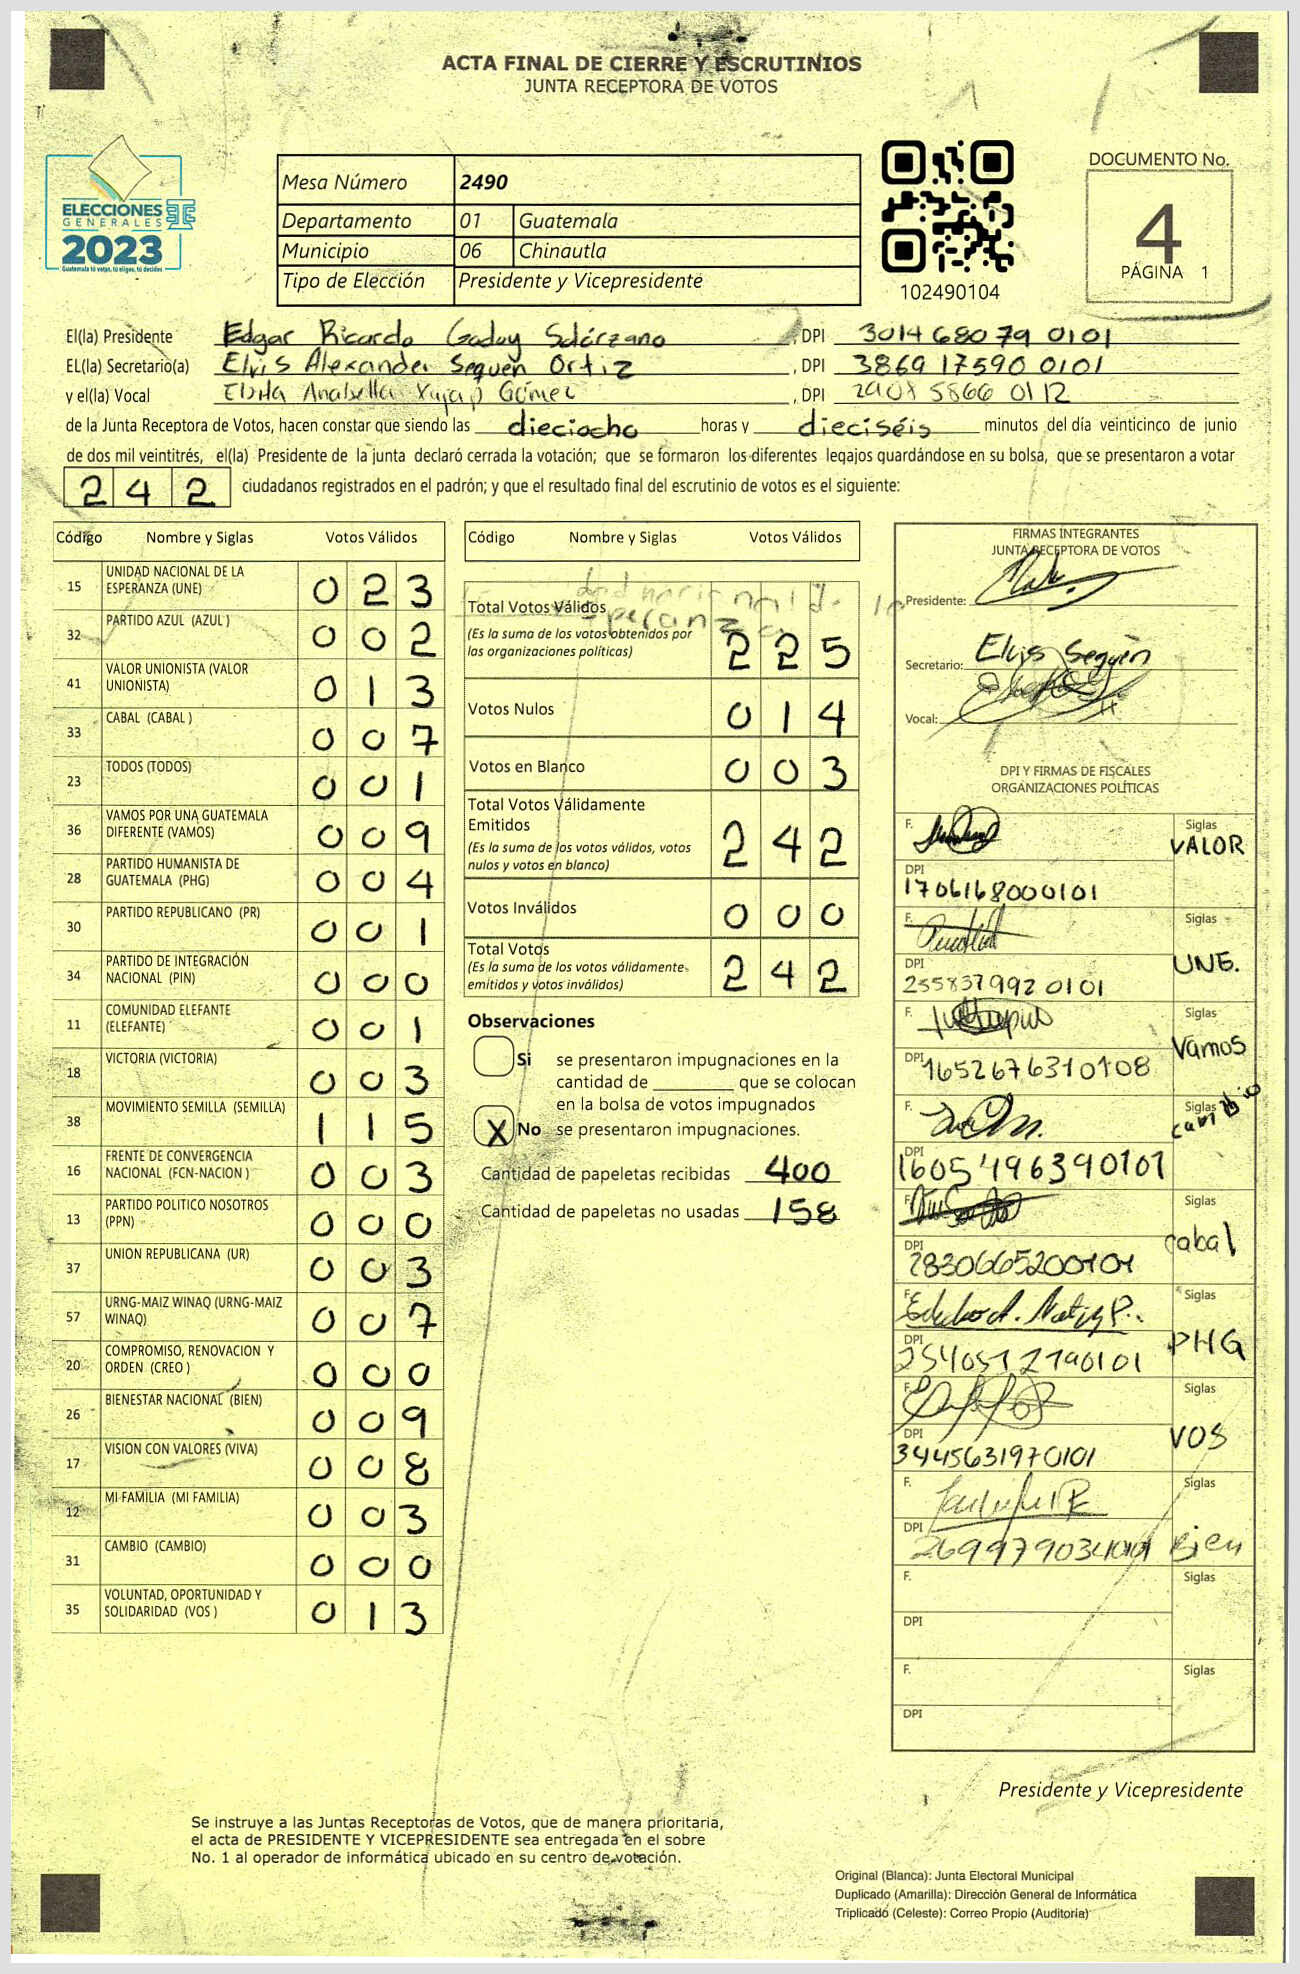 ACTA FINAL DE CIERRE Y ESCRUTINIOS
JUNTA RECEPTORA DE VOTOS
ELECCIONES
GENERALES
2023
Guatemala tú votas, tú eliges, tú decides
Mesa Número 2490
Departamento 01 Guatemala
Municipio 06 Chinautla
Tipo de Elección Presidente y Vicepresidente
102490104
DOCUMENTO No.
4
PÁGINA 1
El(la) Presidente Edgar Ricardo Godoy Solórzano, DPI 3014 68079 0101
EL(la) Secretario(a) Elvis Alexander Sequén Ortiz, DPI 3869 17590 0101
y el(la) Vocal Anabella Gómez, DPI 5866 0112
de la Junta Receptora de Votos, hacen constar que siendo las dieciocho horas y dieciséis minutos del día veinticinco de junio
de dos mil veintitrés, el(la) Presidente de la junta declaró cerrada la votación; que se formaron los diferentes legajos guardándose en su bolsa, que se presentaron a votar
242 ciudadanos registrados en el padrón; y que el resultado final del escrutinio de votos es el siguiente:
Código Nombre y Siglas Votos Válidos
15 UNIDAD NACIONAL DE LA ESPERANZA (UNE) 0 2 3
32 PARTIDO AZUL (AZUL ) 0 0 2
41 VALOR UNIONISTA (VALOR UNIONISTA) 0 1 3
33 CABAL (CABAL ) 0 0 7
23 TODOS (TODOS) 0 0 1
36 VAMOS POR UNA GUATEMALA DIFERENTE (VAMOS) 0 0 9
28 PARTIDO HUMANISTA DE GUATEMALA (PHG) 0 0 4
30 PARTIDO REPUBLICANO (PR) 0 0 1
34 PARTIDO DE INTEGRACIÓN NACIONAL (PIN) 0 0 0
11 COMUNIDAD ELEFANTE (ELEFANTE) 0 0 1
18 VICTORIA (VICTORIA) 0 0 3
38 MOVIMIENTO SEMILLA (SEMILLA) 1 1 5
16 FRENTE DE CONVERGENCIA NACIONAL (FCN-NACION ) 0 0 3
13 PARTIDO POLITICO NOSOTROS (PPN) 0 0 0
37 UNION REPUBLICANA (UR) 0 0 3
57 URNG-MAIZ WINAQ (URNG-MAIZ WINAQ) 0 0 7
20 COMPROMISO, RENOVACION Y ORDEN (CREO ) 0 0 0
26 BIENESTAR NACIONAL (BIEN) 0 0 9
17 VISION CON VALORES (VIVA) 0 0 8
12 MI FAMILIA (MI FAMILIA) 0 0 3
31 CAMBIO (CAMBIO) 0 0 0
35 VOLUNTAD, OPORTUNIDAD Y SOLIDARIDAD (VOS ) 0 1 3
Código Nombre y Siglas Votos Válidos
Total Votos Válidos
(Es la suma de los votos obtenidos por
las organizaciones políticas) 2 2 5
Votos Nulos 0 1 4
Votos en Blanco 0 0 3
Total Votos Válidamente
Emitidos
(Es la suma de los votos válidos, votos
nulos y votos en blanco) 2 4 2
Votos Inválidos 0 0 0
Total Votos
(Es la suma de los votos válidamente
emitidos y votos inválidos) 2 4 2
Observaciones
Si se presentaron impugnaciones en la
cantidad de ________ que se colocan
en la bolsa de votos impugnados
X No se presentaron impugnaciones.
Cantidad de papeletas recibidas 400
Cantidad de papeletas no usadas 158
FIRMAS INTEGRANTES
JUNTA RECEPTORA DE VOTOS
Presidente:
Secretario: Elvis Sequén
Vocal:
DPI Y FIRMAS DE FISCALES
ORGANIZACIONES POLÍTICAS
F. Siglas VALOR
DPI 1706168000101
F. Siglas UNE.
DPI 2558379920101
F. Siglas Vamos
DPI 1652676310108
F. Siglas cambio
DPI 1605496390101
F. Siglas cabal
DPI 2830665200101
F. Siglas PHG
DPI 2540512790101
F. Siglas VOS
DPI 3445631970101
F. Siglas Bien
DPI
F. Siglas
DPI
F. Siglas
DPI
Presidente y Vicepresidente
Se instruye a las Juntas Receptoras de Votos, que de manera prioritaria,
el acta de PRESIDENTE Y VICEPRESIDENTE sea entregada en el sobre
No. 1 al operador de informática ubicado en su centro de votación.
Original (Blanca): Junta Electoral Municipal
Duplicado (Amarilla): Dirección General de Informática
Triplicado (Celeste): Correo Propio (Auditoria)